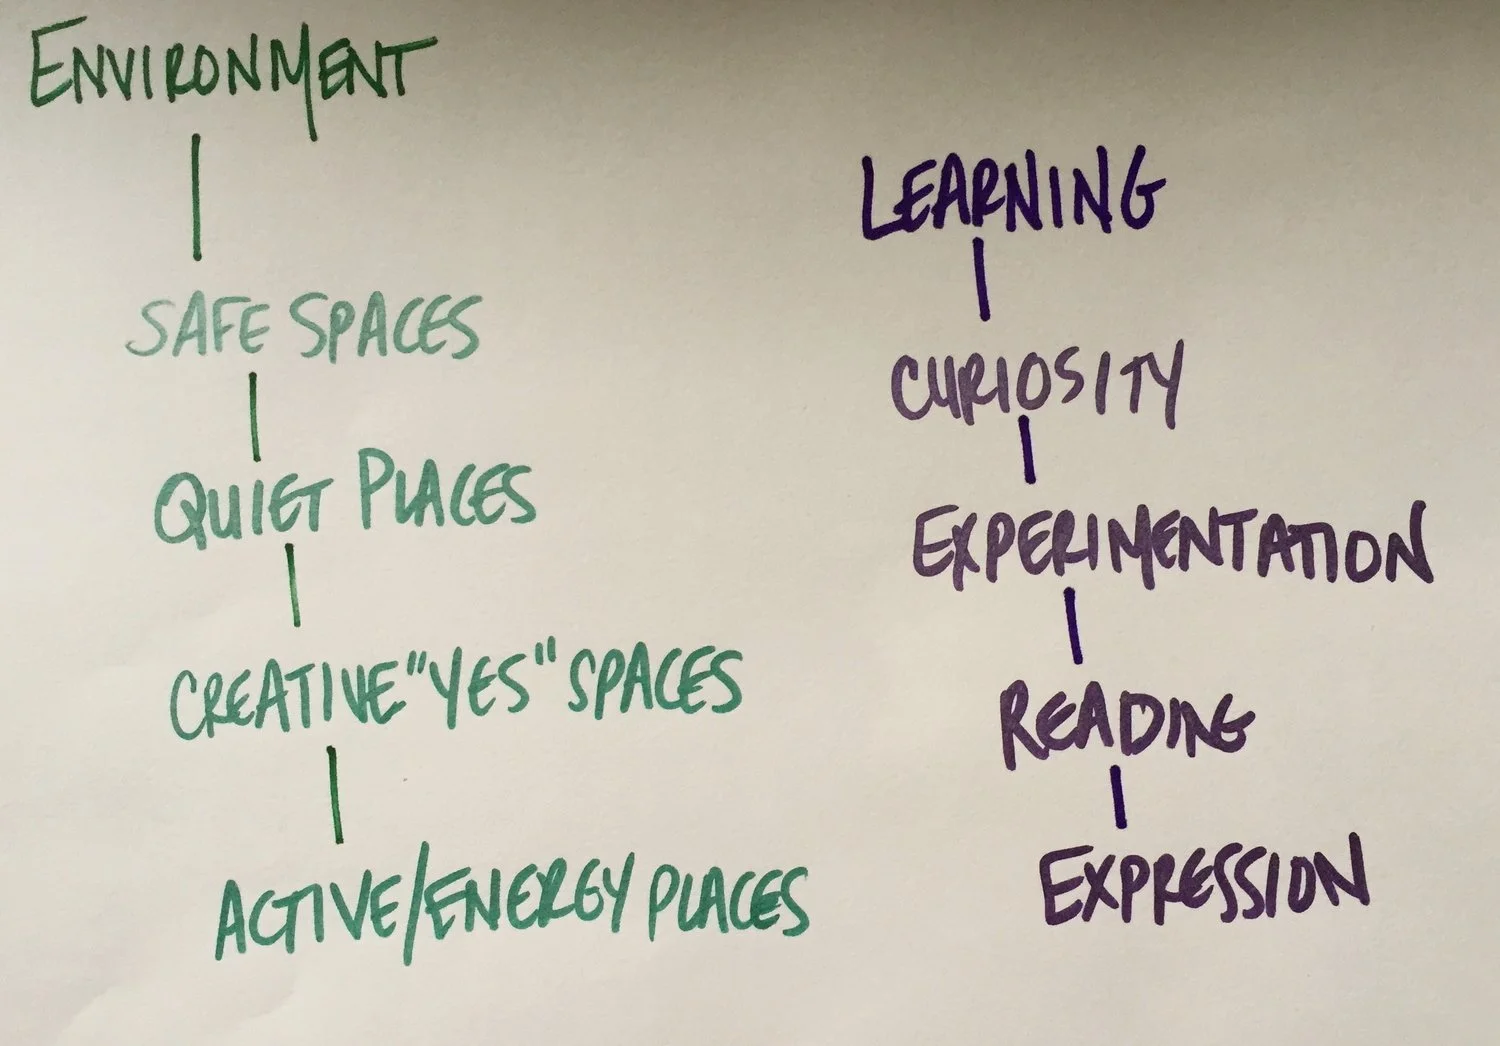 ENVIRONMENT
SAFE SPACES
QUIET PLACES
CREATIVE "YES" SPACES
ACTIVE/ENERGY PLACES
LEARNING
CURIOSITY
EXPERIMENTATION
READING
EXPRESSION